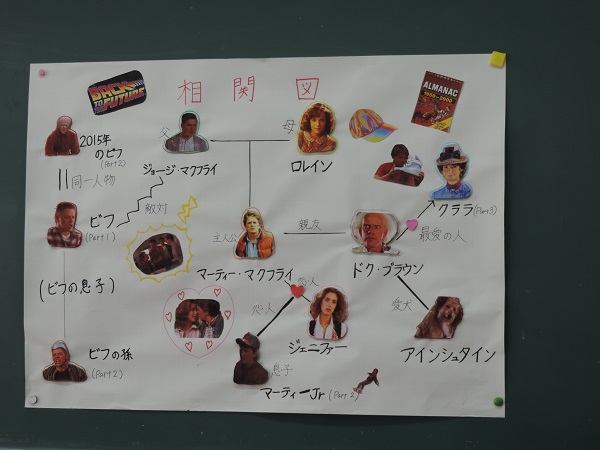 BACK
TO THE
FUTURE
相関図
ALMANAC
1950-2000
2015年
のビフ
(Part2)
父
ジョージ・マクフライ
母
ロレイン
クララ(Part3)
同一人物
ビフ
(Part1)
敵対
主人公
マーティー・マクフライ
親友
ドク・ブラウン
最愛の人
(ビフの息子)
恋人
恋人
ジェニファー
愛犬
アインシュタイン
ビフの孫
(Part2)
息子
マーティーJr (Part2)